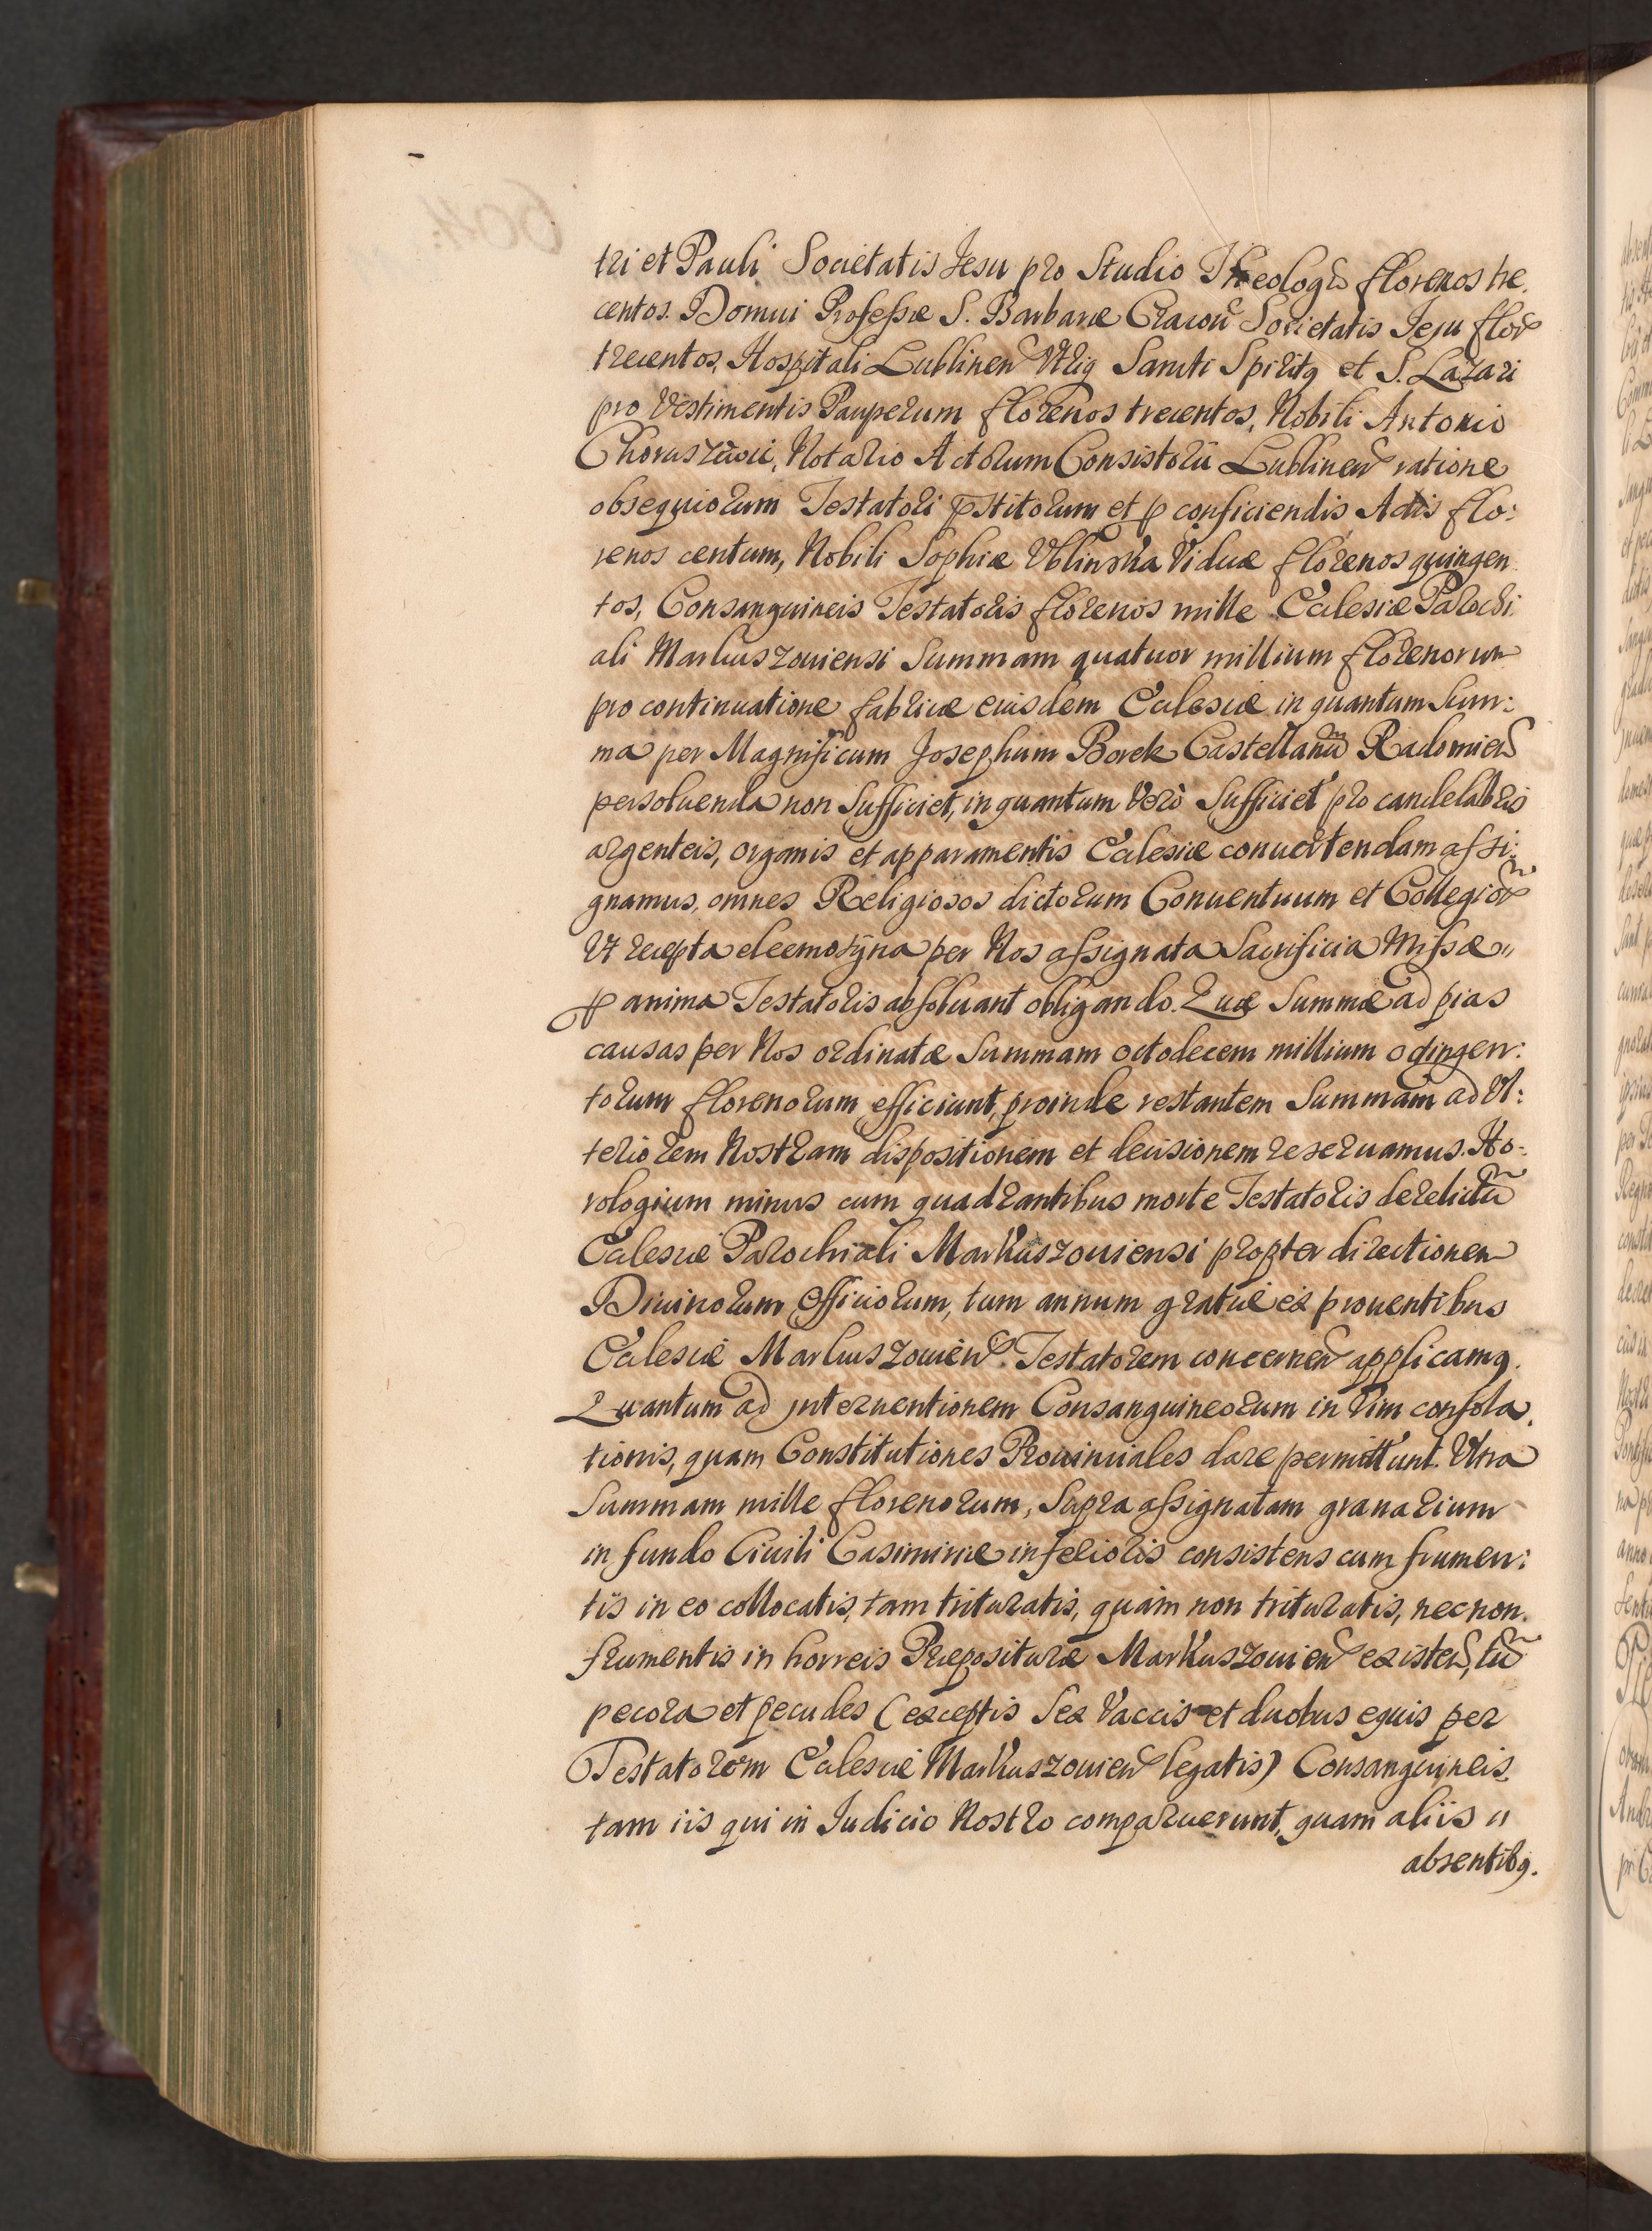 tri et Pauli Societatis Jesu pro Studio Theologiæ florenos tre.
centos. Domui Professæ S. Barbaræ Cracou Societatis Jesu flor
trecentos, Hospitali Lublinen Vtriq Sancti Spiritq et S. Lazari
pro Vestimentis Pauperum florenos trecentos, Nobili Antonio
Notario Actorum Consistorii Lublinen ratione
obsequiorum Testatori pstitorum et p conficiendis Actis flo:
renos centum, Nobili Sophiæ Viduæ florenos quingen
tos, Consanguineis Testatoris florenos mille Ecclesiæ Parochi
ali Markuszouiensi Summam quatuor millium florenorum
pro continuatione fabricæ eiusdem Ecclesiæ in quantum Sum:
ma per Magnificum Josephum Borek Castellanũ Radomien
persoluenda non Sufficiet, in quantum Verò Sufficiet pro candelabris
argenteis, organis et apparamentis Ecclesiæ conuertendam assi:
gnamus, omnes Religiosos dictorum Conuentuum et Collegior
Vt recepta eleemosÿna per Nos assignata Sacrificia Missæ,,
p anima Testatoris absoluant obligando. Quæ Summæ ad pias
causas per Nos ordinatæ Summam octodecem millium octingen:
torum florenorum efficiunt, proinde restantem Summam ad Vl:
teriorem Nostram dispositionem et decisionem reseruamus. Ho:
rologium minus cum quadrantibus morte Testatoris derelictũ
Ecclesiæ Parochiali Markuszouiensi propter directionem
Diuinorum Officiorum, tum annum gratiæ ex prouentibus
Ecclesiæ Markuszouien Testatorem concernen applicamq.
Quantum ad jnteruentionem Consanguineorum in Vim consola.
tionis, quam Constitutiones Prouinciales dare permittunt. Vltra
Summam mille florenorum, Supra assignatam granarium
in fundo Ciuili Casimiriæ inferioris consistens cum frumen:
tis in eo collocatis, tam trituratis, quàm non trituratis, necnon
frumentis in horreis Præposituræ Markuszouien existen, tũ
pecora et pecudes (exceptis Sex Vaccis et duobus equis per
Testatorem Ecclesiæ Markuszouien legatis) Consanguineis
tam iis qui in Judicio Nostro comparuerunt, quam aliis ,,
absentibq.